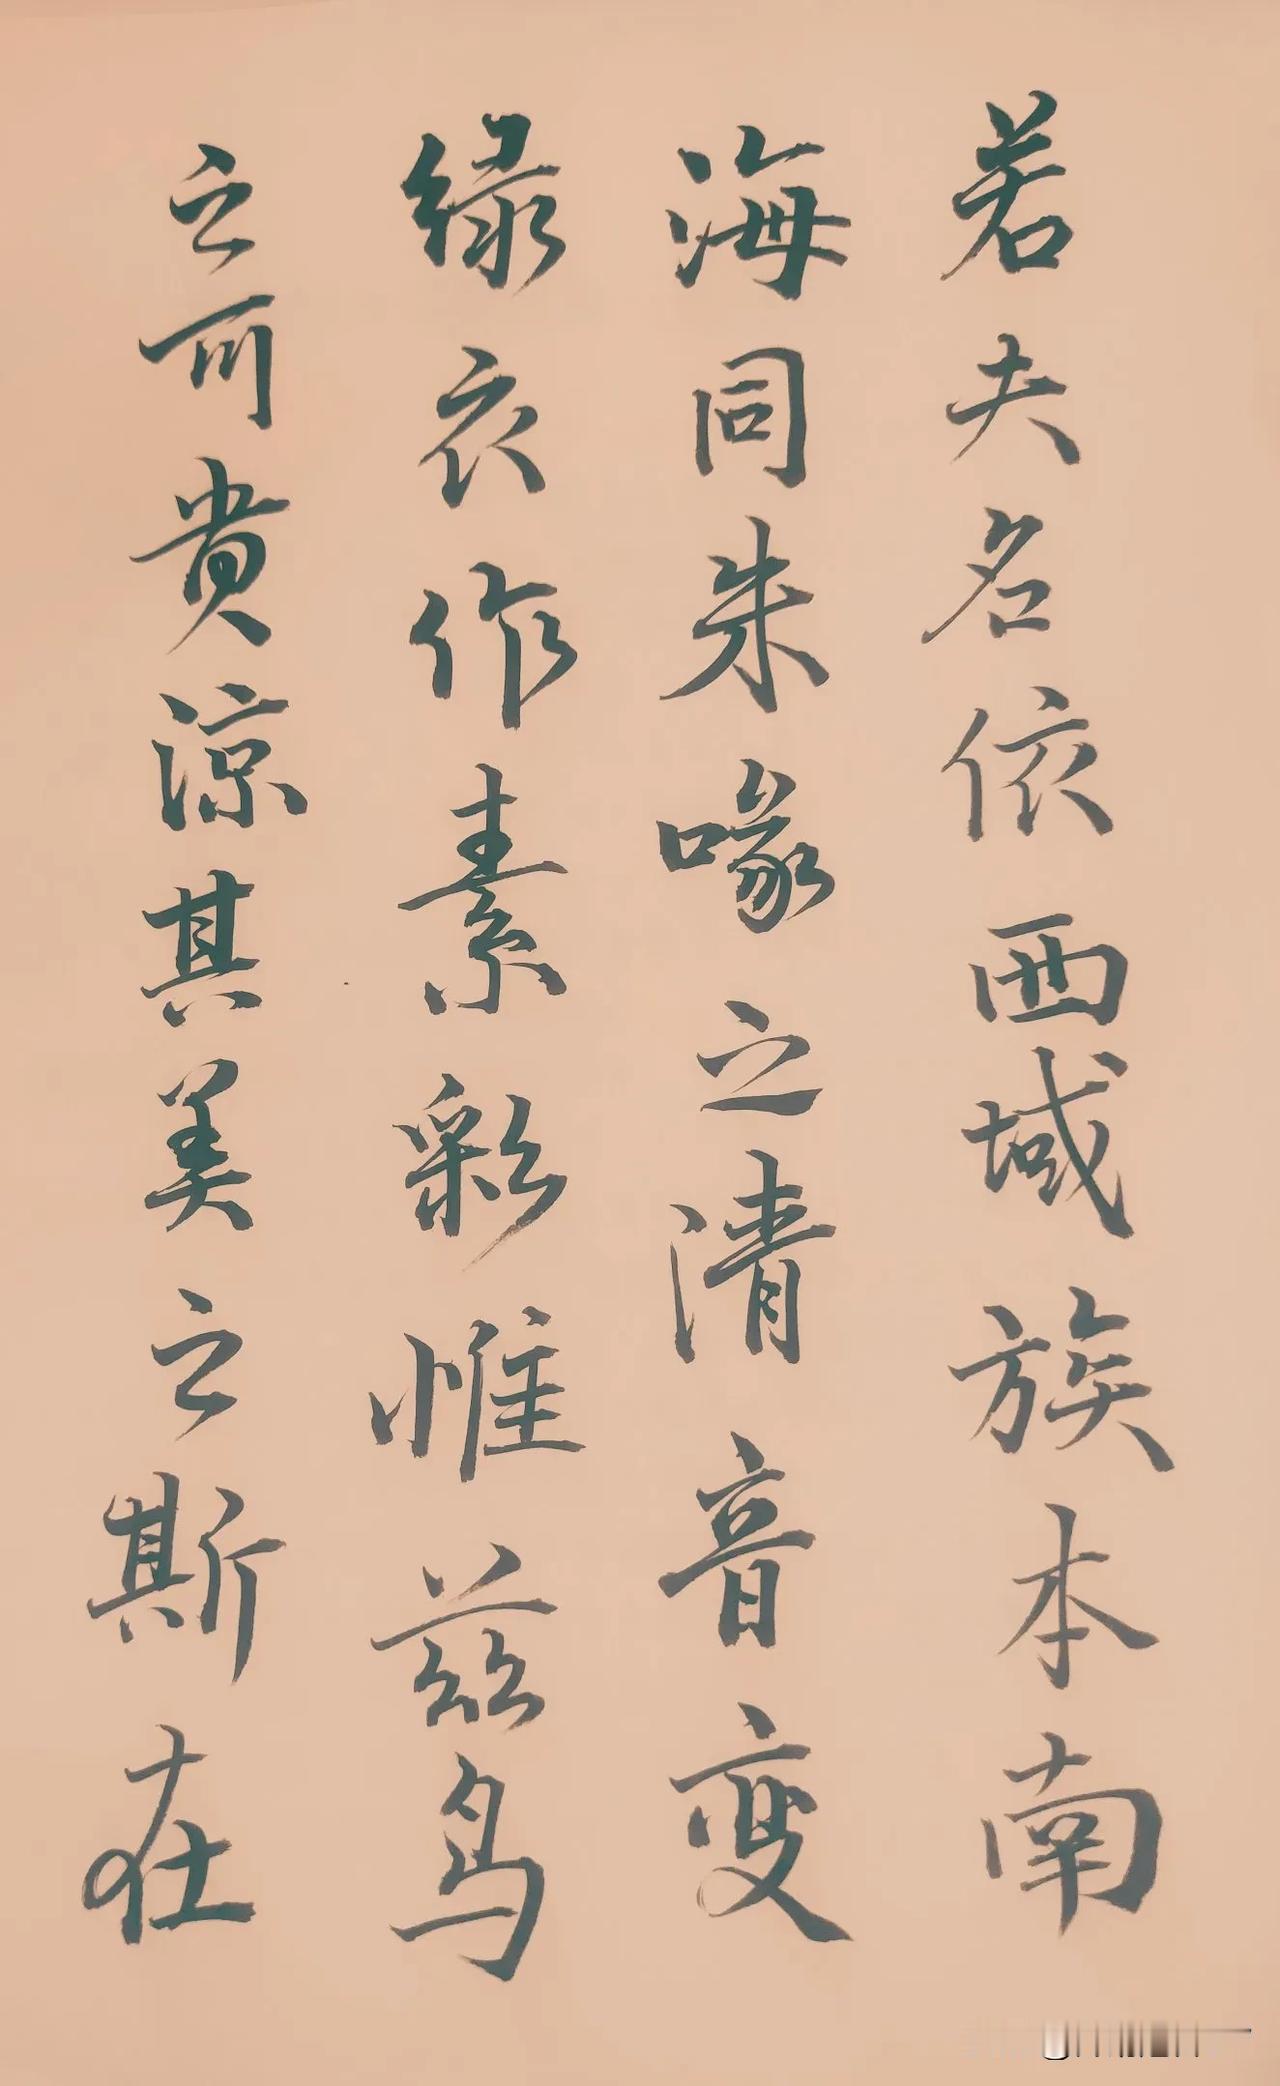 若夫名依西域族本南
海同朱喙之清音变
绿衣作素彩惟兹鸟
之可贵凉其美之斯在